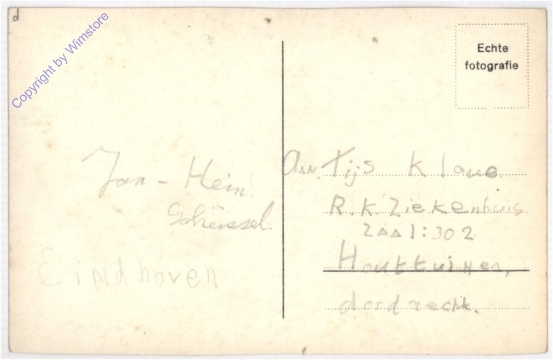 d
Copyright by Wimstore
Echte
fotografie
Jan - Hein
Eindhoven
Aan. Tijs
R.K. Ziekenhuis
ZAAl: 302
Houttuinen,
dordrecht.